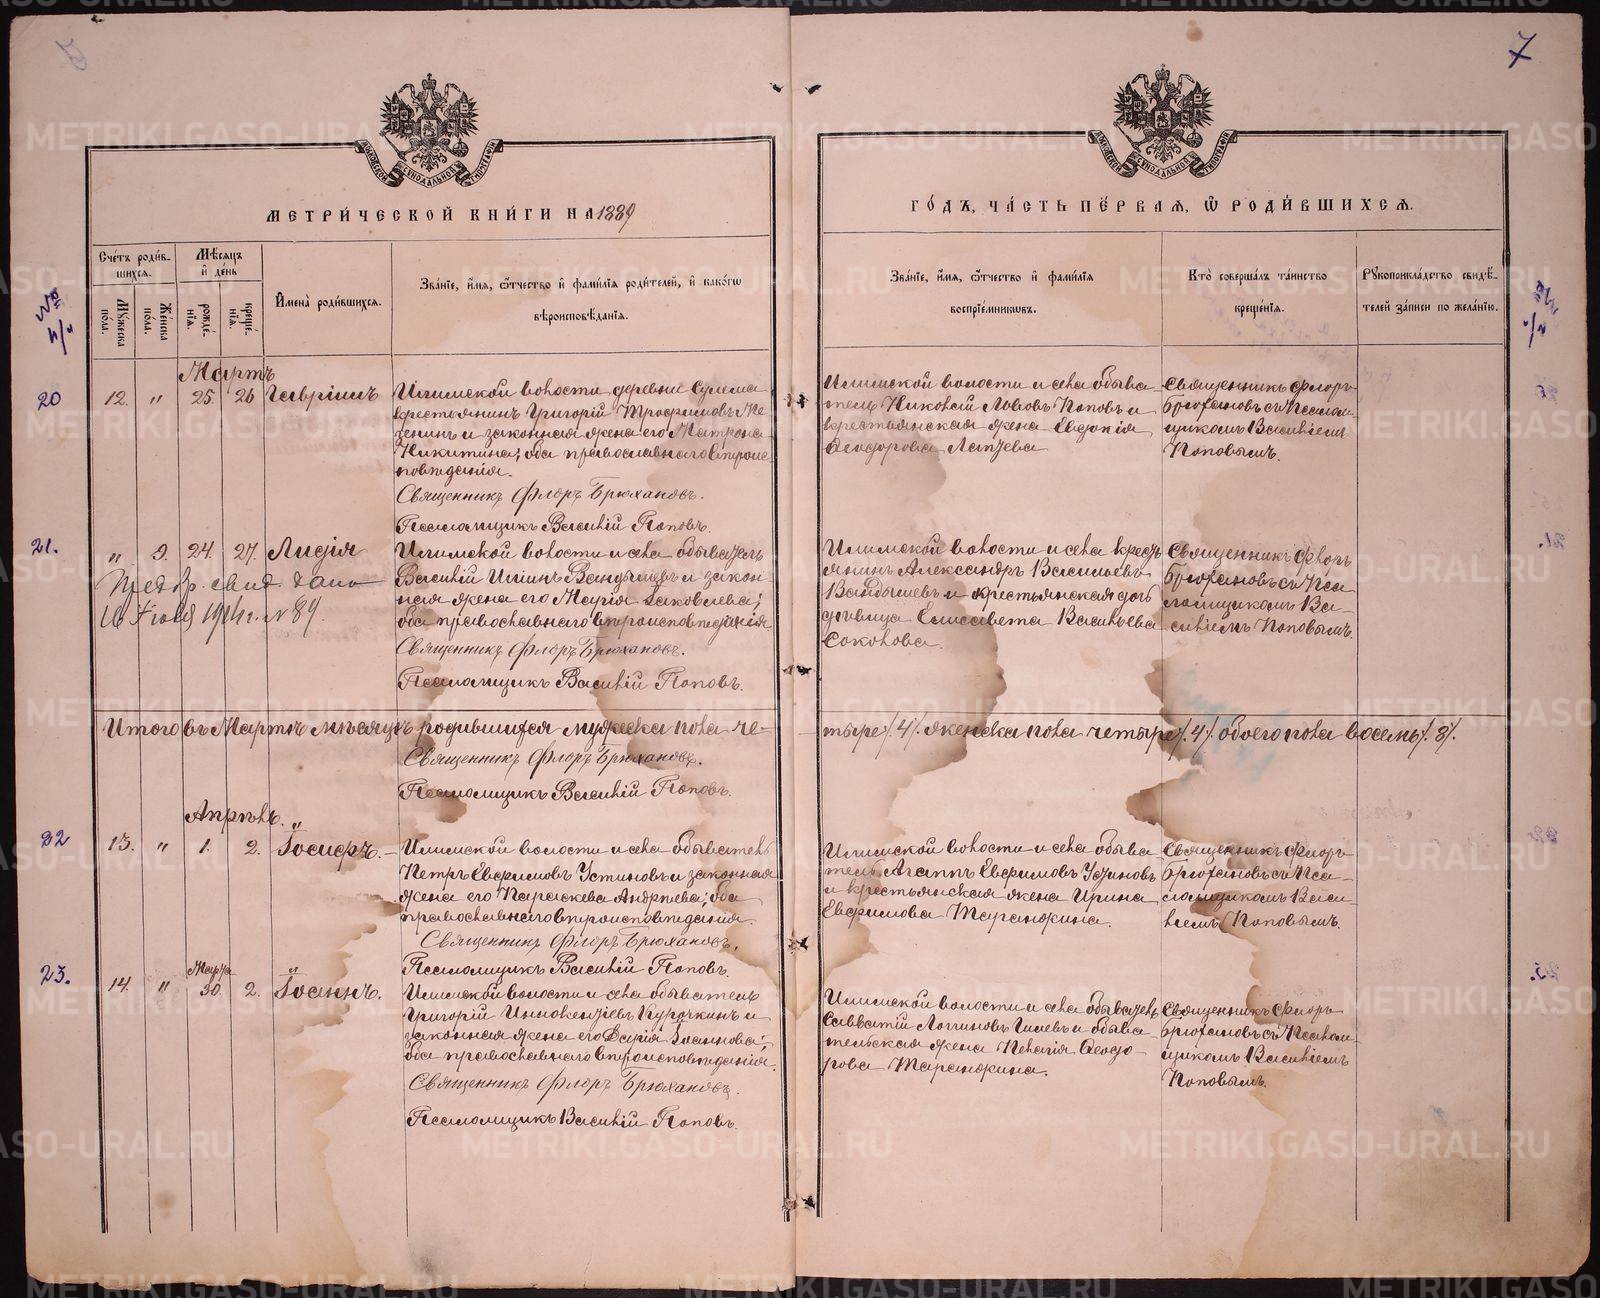 7
МЕТРИ́ЧЕСКОЙ КНИ́ГИ НА 1889
ГО́ДЪ, ЧА́СТЬ ПЕ́РВАЯ, Ѡ РОДИ́ВШИХСЯ.
Сче́тъ роди́в-
шихся.
Му́жеска
по́ла.
Же́нска
по́ла.
Мѣ́сяцъ
и де́нь
рожде́-
нія.
креще́-
нія.
Имена̀ роди́вшихся.
Зва́ніе, и́мя, ѻ́тчество и фами́лія роди́телей, и како́гѡ
вѣроисповѣ́данія.
Зва́ніе, и́мя, ѻ́тчество и фами́лія
воспріе́мникѡвъ.
Кто̀ соверша́лъ та́инство
креще́нія.
Рꙋкоприкла́дство свидѣ́-
телей за́писи по жела́нію.
Мартъ
20
12. " 25 26 Гавріилъ
Илимской волости деревни Сулема
крестьянинъ Григорій Трофимовъ Пе-
ченинъ и законная жена его Матрона
Никитина; оба православнаго вѣроис
повѣданія.
Священникъ Флоръ Брюхановъ.
Псаломщикъ Василій Поповъ.
Илимской волости и села обыва
тель Николай Львовъ Поповъ и
крестьянская жена Евдокія
Ѳеодорова Лапцева
Священникъ Флоръ
Брюхановъ съ Псалом
щикомъ Василіемъ
Поповымъ.
21.
" 9. 24. 27. Лидія
Илимской волости и села обыватель
Василій Ильинъ Вандышевъ и закон-
ная жена его Марія Іаковлева;
оба православнаго вѣроисповѣданія.
Священникъ Флоръ Брюхановъ.
Псаломщикъ Василій Поповъ.
1914 г. № 89.
Илимской волости и села кресть
янинъ Александръ Васильевъ
Вандышевъ и крестьянская дочь
дѣвица Елисавета Васильева
Соколова.
Священникъ Флоръ
Брюхановъ съ Пса
ломщикомъ Ва-
силіемъ Поповымъ.
Итого въ Мартѣ мѣсяцѣ родившихся мужеска пола че-
тыре /.4/. женска пола четыре /.4/. обоего пола восемь /.8/.
Священникъ Флоръ Брюхановъ.
Псаломщикъ Василій Поповъ.
Апрѣль.
22
13. " 1. 2. Іосифъ.
Илимской волости и села обыватель
Петръ Евфимовъ Устиновъ и законная
жена его Параскева Андреева; оба
православнаго вѣроисповѣданія.
Священникъ Флоръ Брюхановъ.
Псаломщикъ Василій Поповъ.
Илимской волости и села обыва
тель Агапъ Евфимовъ Устиновъ
и крестьянская жена Ирина
Евфимова Таранжина.
Священникъ Флоръ
Брюхановъ съ Пса-
ломщикомъ Васи-
ліемъ Поповымъ.
23.
Марта
14. " 30. 2. Іоаннъ.
Илимской волости и села обыватель
Григорій Иннокентіевъ Курочкинъ и
законная жена его Дарія Іоаннова;
оба православнаго вѣроисповѣданія.
Священникъ Флоръ Брюхановъ.
Псаломщикъ Василій Поповъ.
Илимской волости и села обыватель
Савватій Логгиновъ и обыва
тельская жена Пелагія Ѳеодо
рова Таранжина.
Священникъ Флоръ
Брюхановъ съ Псалом
щикомъ Василіемъ
Поповымъ.
METRIKI.GASO-URAL.RU